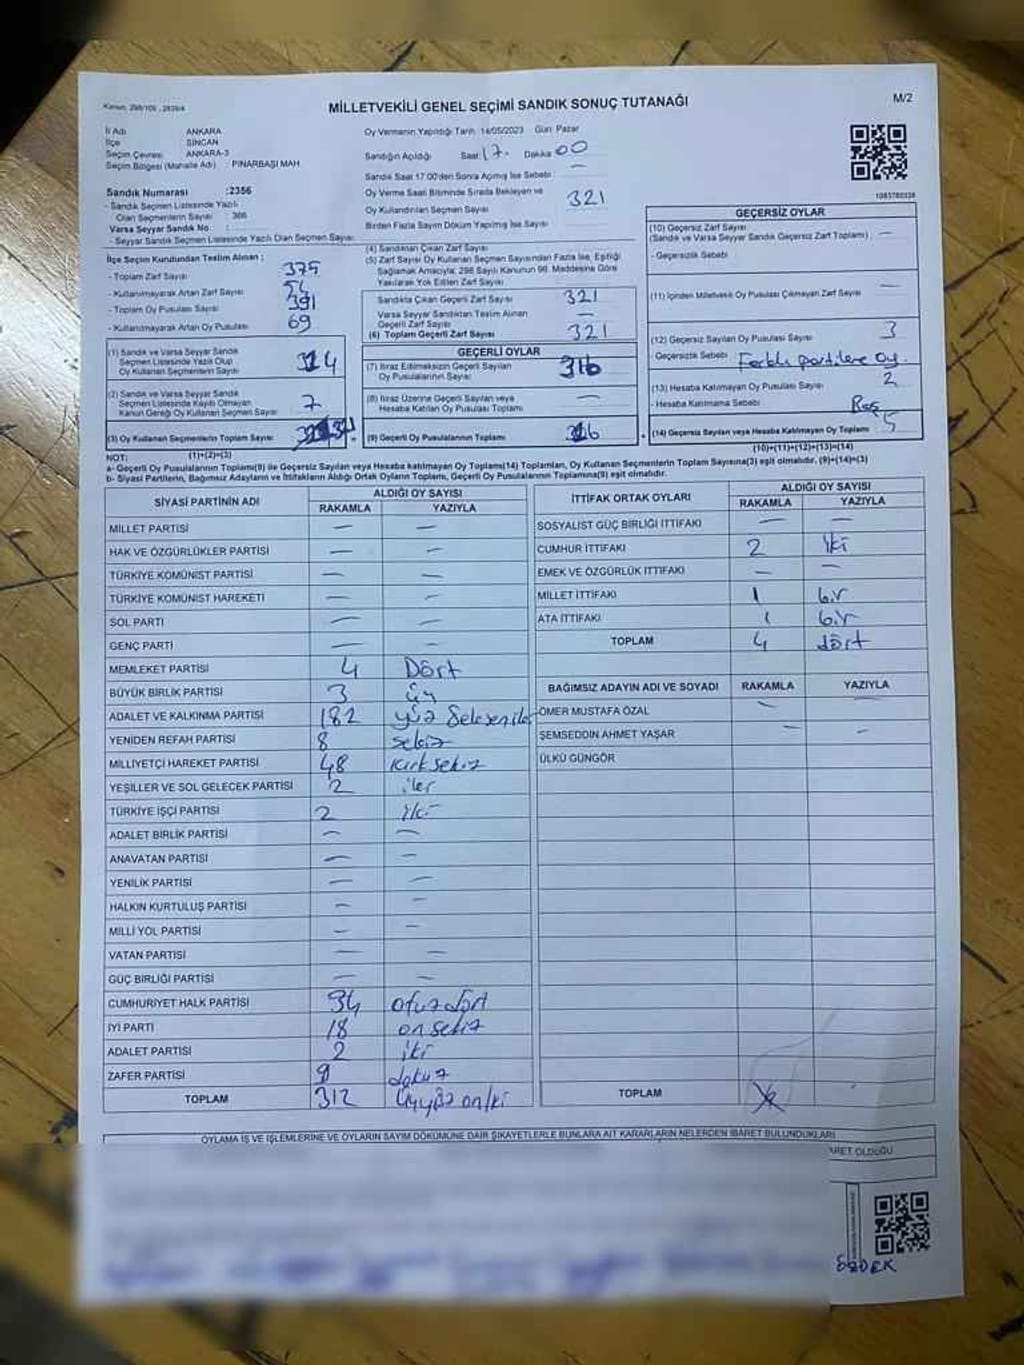 Kanun: 298/105 , 2839/4
MİLLETVEKİLİ GENEL SEÇİMİ SANDIK SONUÇ TUTANAĞI
M/2
İl Adı ANKARA
İlçe SİNCAN
Seçim Çevresi ANKARA-3
Seçim Bölgesi (Mahalle Adı) : PINARBAŞI MAH.
Oy Vermenin Yapıldığı Tarih 14/05/2023 Gün Pazar
Sandığın Açıldığı Saat 17. Dakika 00
Sandık Saat 17.00'den Sonra Açmış İse Sebebi : —
Sandık Numarası :2356
- Sandık Seçmen Listesinde Yazılı
Olan Seçmenlerin Sayısı : 366
Varsa Seyyar Sandık No :
- Seyyar Sandık Seçmen Listesinde Yazılı Olan Seçmen Sayısı:
Oy Verme Saati Bitiminde Sırada Bekleyen ve
Oy Kullandırılan Seçmen Sayısı 321
Birden Fazla Sayım Döküm Yapılmış İse Sayısı :
1083780338
İlçe Seçim Kurulundan Teslim Alınan ;
- Toplam Zarf Sayısı 375
- Kullanılmayarak Artan Zarf Sayısı 54
- Toplam Oy Pusulası Sayısı 391
- Kullanılmayarak Artan Oy Pusulası 69
(1) Sandık ve Varsa Seyyar Sandık
Seçmen Listesinde Yazılı Olup
Oy Kullanan Seçmenlerin Sayısı 314
(2) Sandık ve Varsa Seyyar Sandık
Seçmen Listesinde Kayıtlı Olmayan
Kanun Gereği Oy Kullanan Seçmen Sayısı 7
(3) Oy Kullanan Seçmenlerin Toplam Sayısı
(1)+(2)=(3)
(4) Sandıktan Çıkan Zarf Sayısı
(5) Zarf Sayısı Oy Kullanan Seçmen Sayısından Fazla İse, Eşitliği
Sağlamak Amacıyla, 298 Sayılı Kanunun 98. Maddesine Göre
Yakılarak Yok Edilen Zarf Sayısı
Sandıkta Çıkan Geçerli Zarf Sayısı 321
Varsa Seyyar Sandıktan Teslim Alınan
Geçerli Zarf Sayısı —
(6) Toplam Geçerli Zarf Sayısı 321
GEÇERLİ OYLAR
(7) İtiraz Edilmeksizin Geçerli Sayılan
Oy Pusulalarının Sayısı 316
(8) İtiraz Üzerine Geçerli Sayılan veya
Hesaba Katılan Oy Pusulaları Toplamı —
(9) Geçerli Oy Pusulalarının Toplamı 316
GEÇERSİZ OYLAR
(10) Geçersiz Zarf Sayısı
(Sandık ve Varsa Seyyar Sandık Geçersiz Zarf Toplamı) —
- Geçersizlik Sebebi
(11) İçinden Milletvekili Oy Pusulası Çıkmayan Zarf Sayısı —
(12) Geçersiz Sayılan Oy Pusulası Sayısı 3
- Geçersizlik Sebebi Farklı partilere oy.
(13) Hesaba Katılmayan Oy Pusulası Sayısı 2
- Hesaba Katılmama Sebebi Boş
(14) Geçersiz Sayılan veya Hesaba Katılmayan Oy Toplamı 5
(10)+(11)+(12)+(13)=(14)
NOT:
a- Geçerli Oy Pusulalarının Toplamı(9) ile Geçersiz Sayılan veya Hesaba katılmayan Oy Toplamı(14) Toplamları, Oy Kullanan Seçmenlerin Toplam Sayısına(3) eşit olmalıdır. (9)+(14)=(3)
b- Siyasi Partilerin, Bağımsız Adayların ve İttifakların Aldığı Ortak Oyların Toplamı, Geçerli Oy Pusulalarının Toplamına(9) eşit olmalıdır.
SİYASİ PARTİNİN ADI ALDIĞI OY SAYISI
RAKAMLA YAZIYLA
MİLLET PARTİSİ — —
HAK VE ÖZGÜRLÜKLER PARTİSİ — —
TÜRKİYE KOMÜNİST PARTİSİ — —
TÜRKİYE KOMÜNİST HAREKETİ — —
SOL PARTİ — —
GENÇ PARTİ — —
MEMLEKET PARTİSİ 4 Dört
BÜYÜK BİRLİK PARTİSİ 3 üç
ADALET VE KALKINMA PARTİSİ 182 yüz Seksen iki
YENİDEN REFAH PARTİSİ 8 sekiz
MİLLİYETÇİ HAREKET PARTİSİ 48 kırk sekiz
YEŞİLLER VE SOL GELECEK PARTİSİ 2 iki
TÜRKİYE İŞÇİ PARTİSİ 2 iki
ADALET BİRLİK PARTİSİ — —
ANAVATAN PARTİSİ — —
YENİLİK PARTİSİ — —
HALKIN KURTULUŞ PARTİSİ — —
MİLLİ YOL PARTİSİ — —
VATAN PARTİSİ — —
GÜÇ BİRLİĞİ PARTİSİ — —
CUMHURİYET HALK PARTİSİ 34 otuz dört
İYİ PARTİ 18 on sekiz
ADALET PARTİSİ 2 iki
ZAFER PARTİSİ 9 dokuz
TOPLAM 312 Üçyüz on iki
İTTİFAK ORTAK OYLARI ALDIĞI OY SAYISI
RAKAMLA YAZIYLA
SOSYALİST GÜÇ BİRLİĞİ İTTİFAKI — —
CUMHUR İTTİFAKI 2 iki
EMEK VE ÖZGÜRLÜK İTTİFAKI — —
MİLLET İTTİFAKI 1 bir
ATA İTTİFAKI 1 bir
TOPLAM 4 dört
BAĞIMSIZ ADAYIN ADI VE SOYADI RAKAMLA YAZIYLA
ÖMER MUSTAFA ÖZAL — —
ŞEMSEDDİN AHMET YAŞAR — —
ÜLKÜ GÜNGÖR
TOPLAM
OYLAMA İŞ VE İŞLEMLERİNE VE OYLARIN SAYIM DÖKÜMÜNE DAİR ŞİKAYETLERLE BUNLARA AİT KARARLARIN NELERDEN İBARET BULUNDUKLARI
OLDUĞU